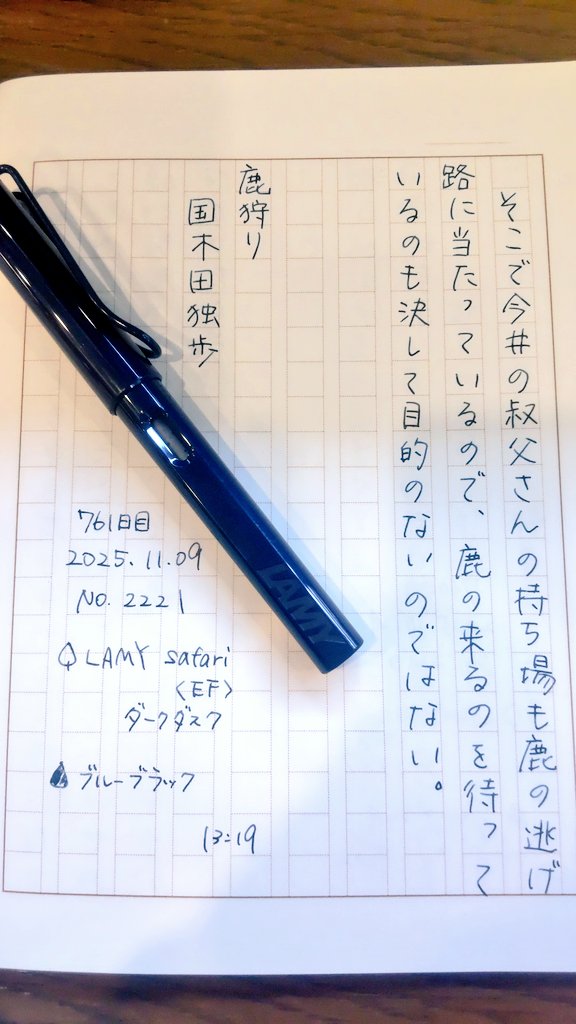 そこで今井の叔父さんの持ち場も鹿の逃げ
路に当たっているので、鹿の来るのを待って
いるのも決して目的のないのではない。
鹿狩り
国木田独歩
761日目
2025.11.09
No.2221
LAMY safari
〈EF〉
ダークダスク
ブルーブラック
13:19
LAMY